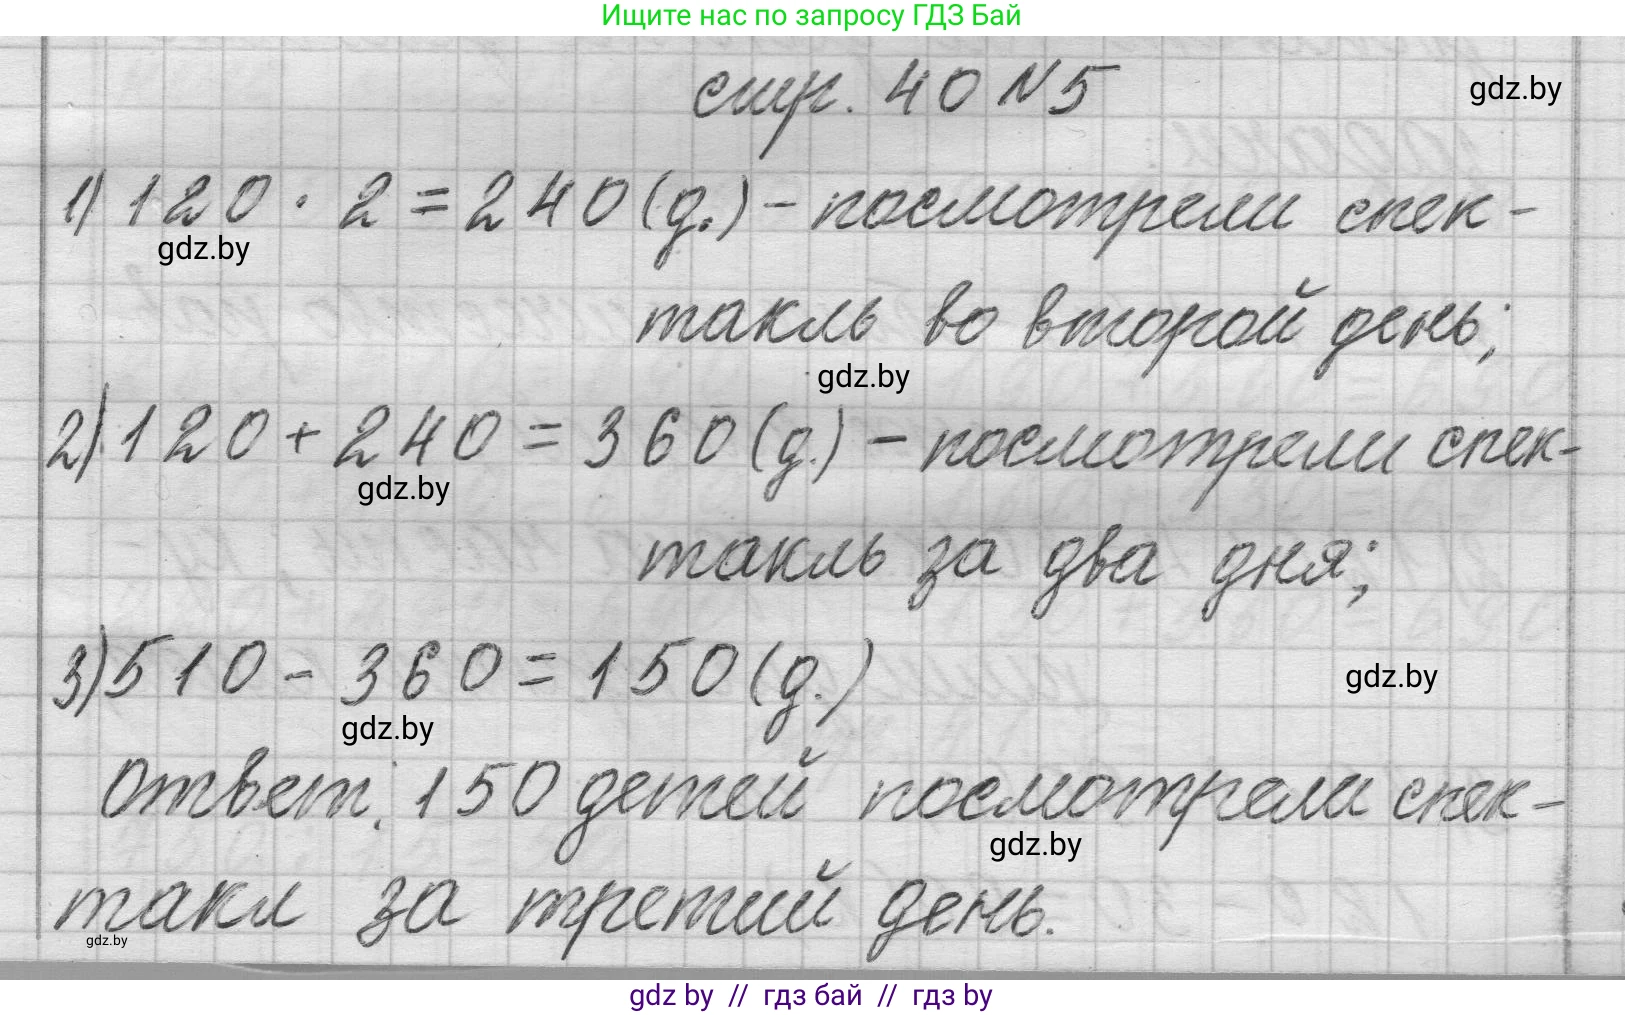 Ищите нас по запросу ГДЗ Бай
стр. 40 N 5
gdz.by
1) 120 · 2 = 240 (д.) - посмотрели спек-
gdz.by
такль во второй день;
gdz.by
2) 120 + 240 = 360 (д.) - посмотрели спек-
gdz.by
такль за два дня;
3) 510 - 360 = 150 (д.)
gdz.by
gdz.by
Ответ: 150 детей посмотрели спек-
gdz.by
такл за третий день.
gdz.by
gdz by // гдз бай // гдз by